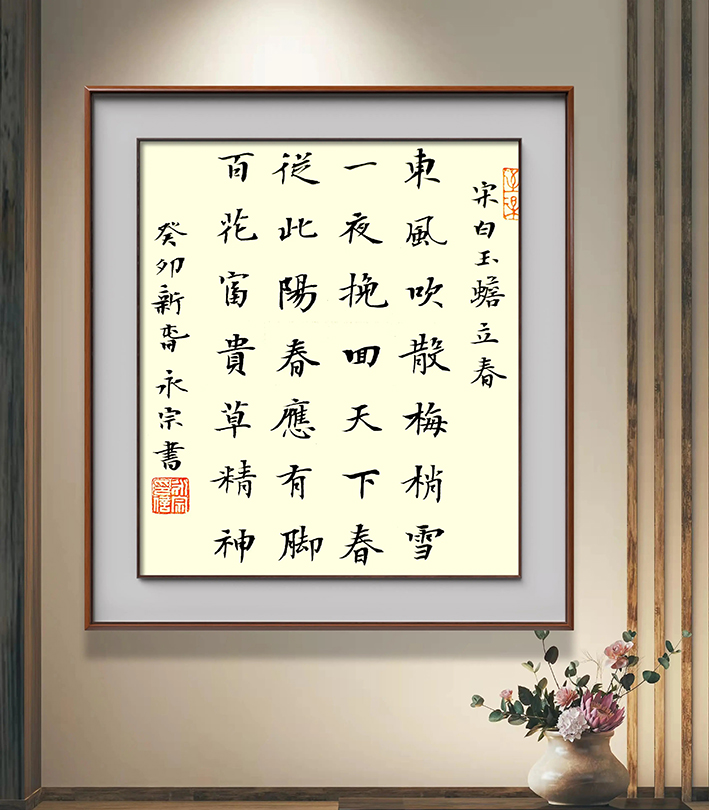 宋白玉蟾立春
東風吹散梅梢雪
一夜挽回天下春
從此陽春應有脚
百花富貴草精神
癸卯新春永宗書